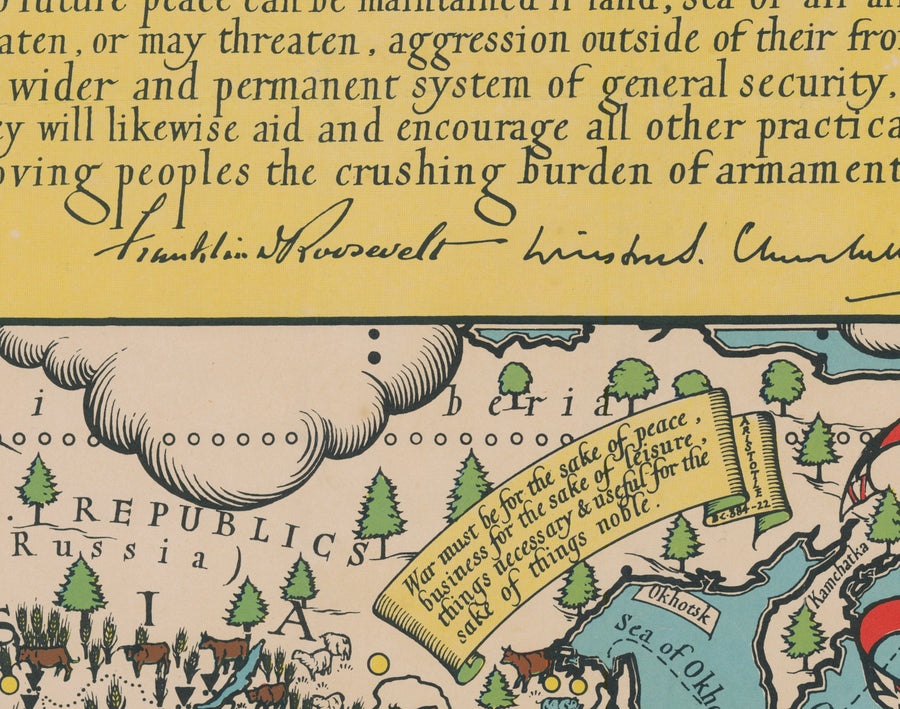 future peace can be maintained if land, sea or air
aten, or may threaten, aggression outside of their fro
wider and permanent system of general security,
ey will likewise aid and encourage all other practica
oving peoples the crushing burden of armament
Franklin D Roosevelt Winston S. Churchill
i beria
REPUBLICS
Russia)
S I A
War must be for the sake of peace,
business for the sake of leisure,
things necessary & useful for the
sake of things noble.
ARISTOTLE
BC·384-22
Okhotsk
Sea of Okho
Kamchatka